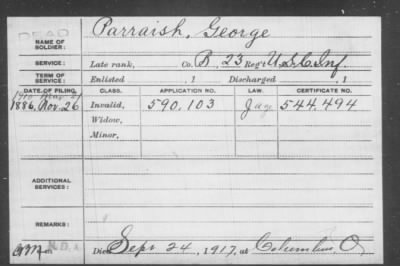 DEAD
NAME OF SOLDIER: Parraish, George
SERVICE: Late rank, Co. B, 23 Reg't U.S.C. Inf.
TERM OF SERVICE: Enlisted , 1 Discharged , 1
DATE OF FILING. CLASS. APPLICATION NO. LAW. CERTIFICATE NO.
1886, Nov. 26 Invalid, 590.103 544.494
Widow,
Minor,
ADDITIONAL SERVICES:
REMARKS:
Died Sept 24, 1917, at Columbus, O.